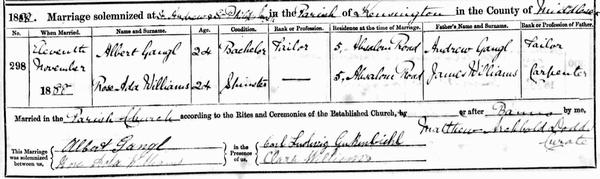 1888. Marriage solemnized at St. Andrew & St. Philip's in the Parish of Kensington in the County of Middlesex
No. When Married. Name and Surname. Age. Condition. Rank or Profession. Residence at the time of Marriage. Father's Name and Surname. Rank or Profession of Father.
298 Eleventh November 1888 Albert Gangl 24 Bachelor Tailor 5, Road Andrew Gangl Tailor
Rose Ada Williams 24 Spinster — 5, Road James Williams Carpenter
Married in the Parish Church according to the Rites and Ceremonies of the Established Church, by or after Banns by me,
Matthew Archbold Dodd
Curate
This Marriage was solemnized between us, Albert Gangl
Rose Ada Williams
in the Presence of us, Carl Ludwig
Clara Williams